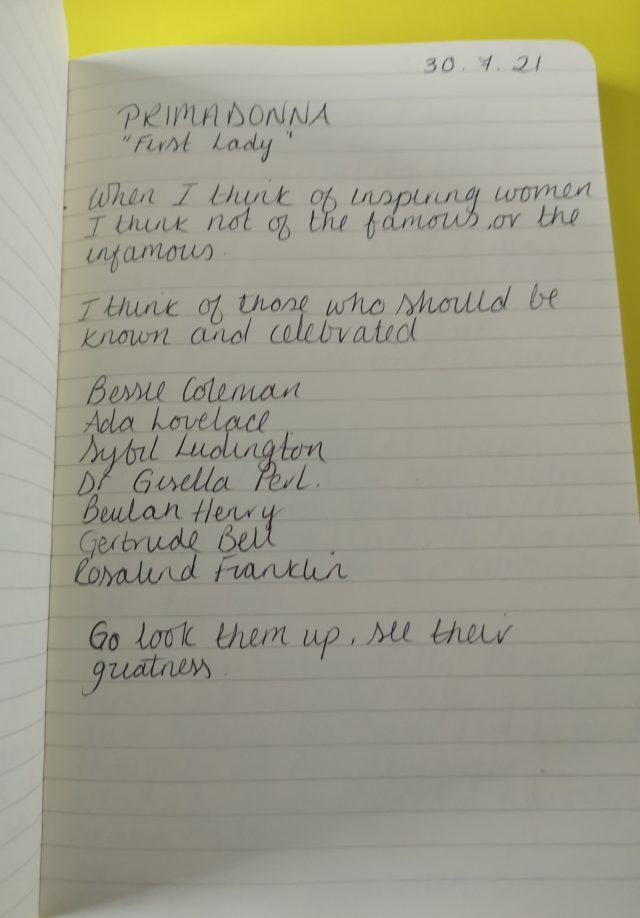 30.7.21
PRIMADONNA
"First Lady"
When I think of inspiring women
I think not of the famous, or the
infamous.
I think of those who should be
known and celebrated
Bessie Coleman
Ada Lovelace
Sybil Ludington
Dr Gisella Perl.
Beulah Henry
Gertrude Bell
Rosalind Franklin
Go look them up, see their
greatness.